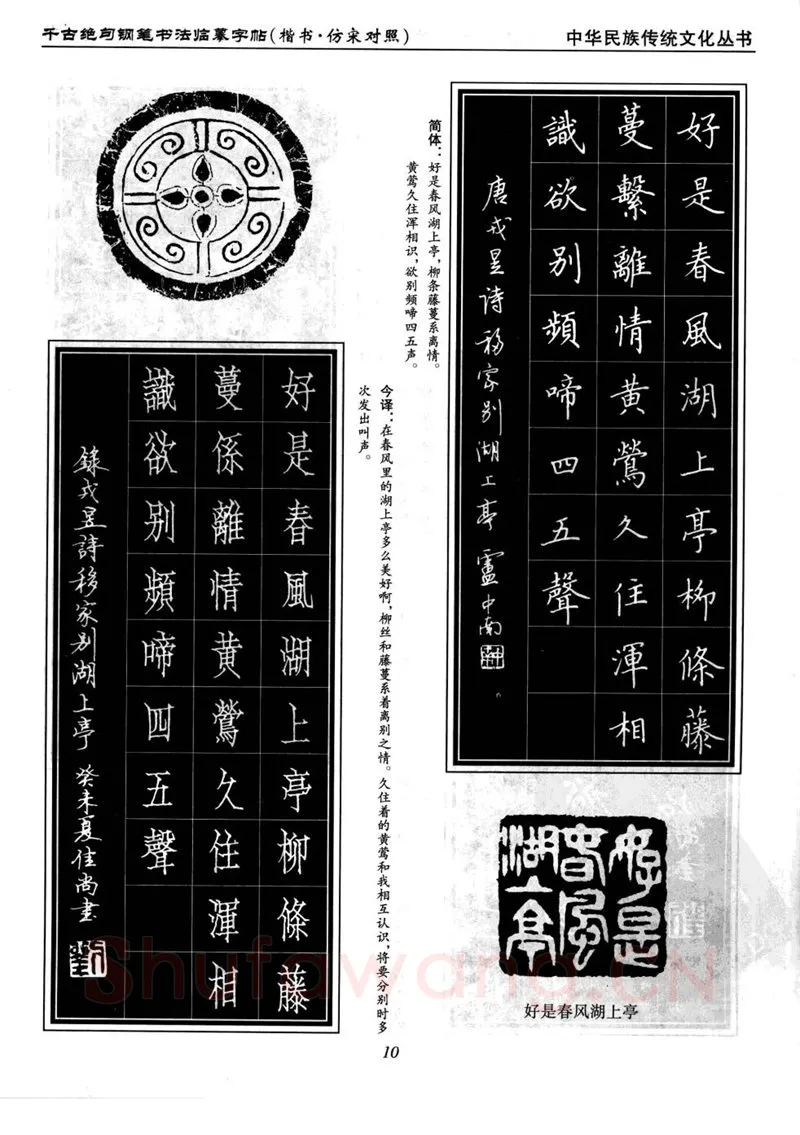 千古绝句钢笔书法临摹字帖(楷书·仿宋对照)
中华民族传统文化丛书
好是春風湖上亭柳條藤
蔓繫離情黄鶯久住渾相
識欲别頻啼四五聲
唐戎昱詩移家别湖上亭 盧中南
简体：好是春风湖上亭，柳条藤蔓系离情。
黄莺久住浑相识，欲别频啼四五声。
今译：在春风里的湖上亭多么美好啊，柳丝和藤蔓系着离别之情。久住着的黄莺和我相互认识，将要分别时多
次发出叫声。
好是春風湖上亭柳條藤
蔓係離情黄鶯久住渾相
識欲别頻啼四五聲
錄戎昱詩移家别湖上亭 癸未夏佳尚書
好是
春風
湖亭
好是春风湖上亭
Shufawang.CN
10